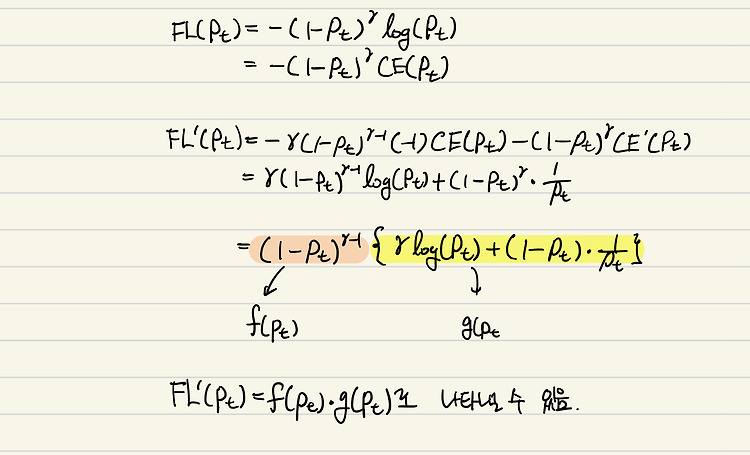 FL(Pt) = -(1-Pt)^γ log(Pt)
= -(1-Pt)^γ CE(Pt)
FL'(Pt) = -γ(1-Pt)^γ-1 (-1) CE(Pt) - (1-Pt)^γ CE'(Pt)
= γ(1-Pt)^γ-1 log(Pt) + (1-Pt)^γ · 1/Pt
= (1-Pt)^γ-1 · { γ log(Pt) + (1-Pt) · 1/Pt }
f(Pt) g(Pt
FL'(Pt) = f(Pt) · g(Pt)로 나타낼 수 있음.